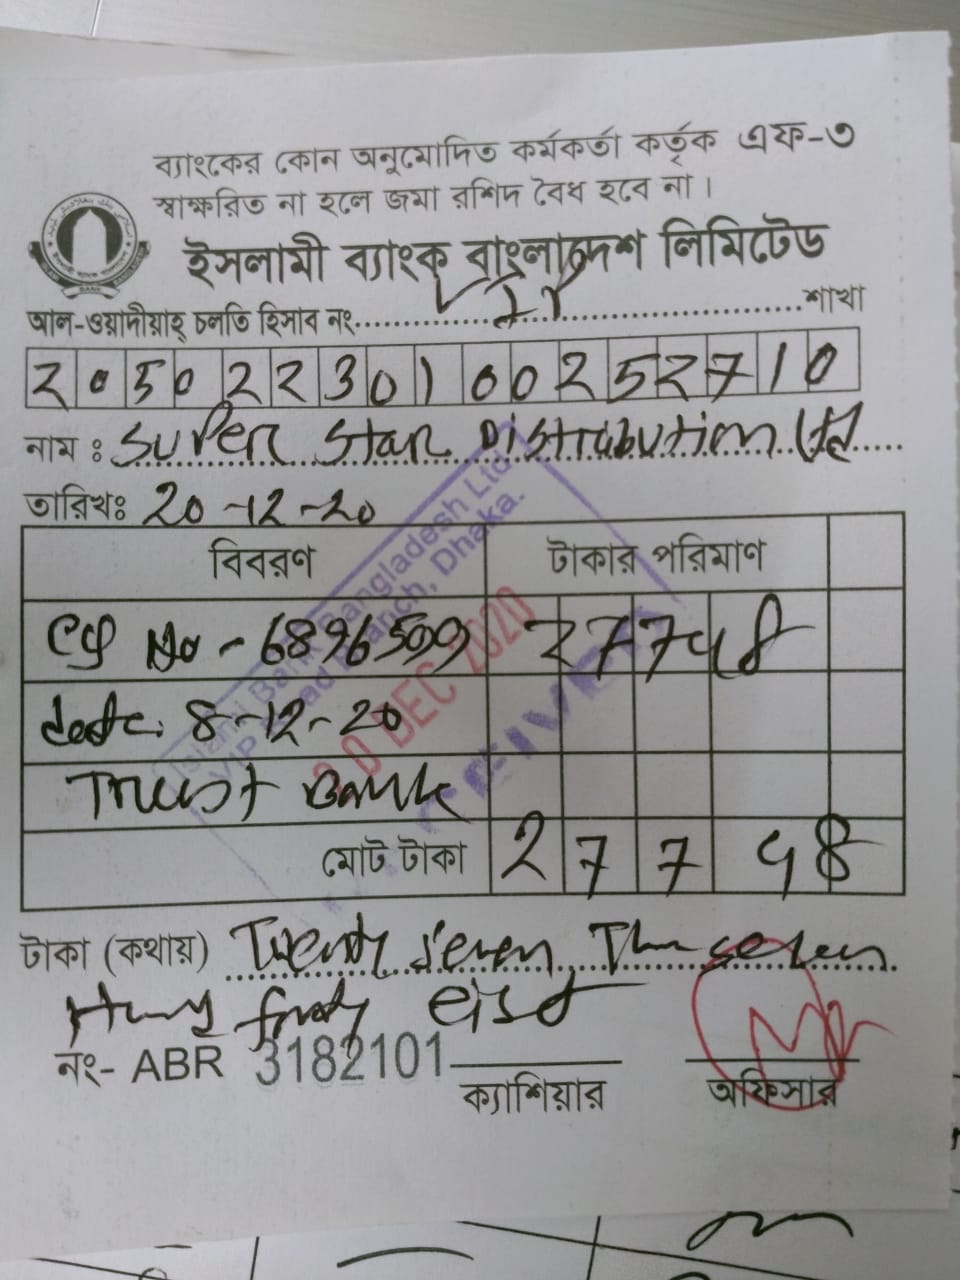 ব্যাংকের কোন অনুমোদিত কর্মকর্তা কর্তৃক এফ-৩
স্বাক্ষরিত না হলে জমা রশিদ বৈধ হবে না।
ইসলামী ব্যাংক বাংলাদেশ লিমিটেড
আল-ওয়াদীয়াহ্ চলতি হিসাব নং.....VIP.....শাখা
20502230100252710
নাম : Super Star Distribution Ltd
তারিখঃ 20-12-20
বিবরণ টাকার পরিমাণ
No - 6896509 27748
date: 8-12-20
Trust Bank
মোট টাকা 27748
Islami Bank Bangladesh Ltd.
VIP Road Branch, Dhaka.
20 DEC 2020
RECEIVED
টাকা (কথায়) Twenty Seven
নং- ABR 3182101
ক্যাশিয়ার অফিসার